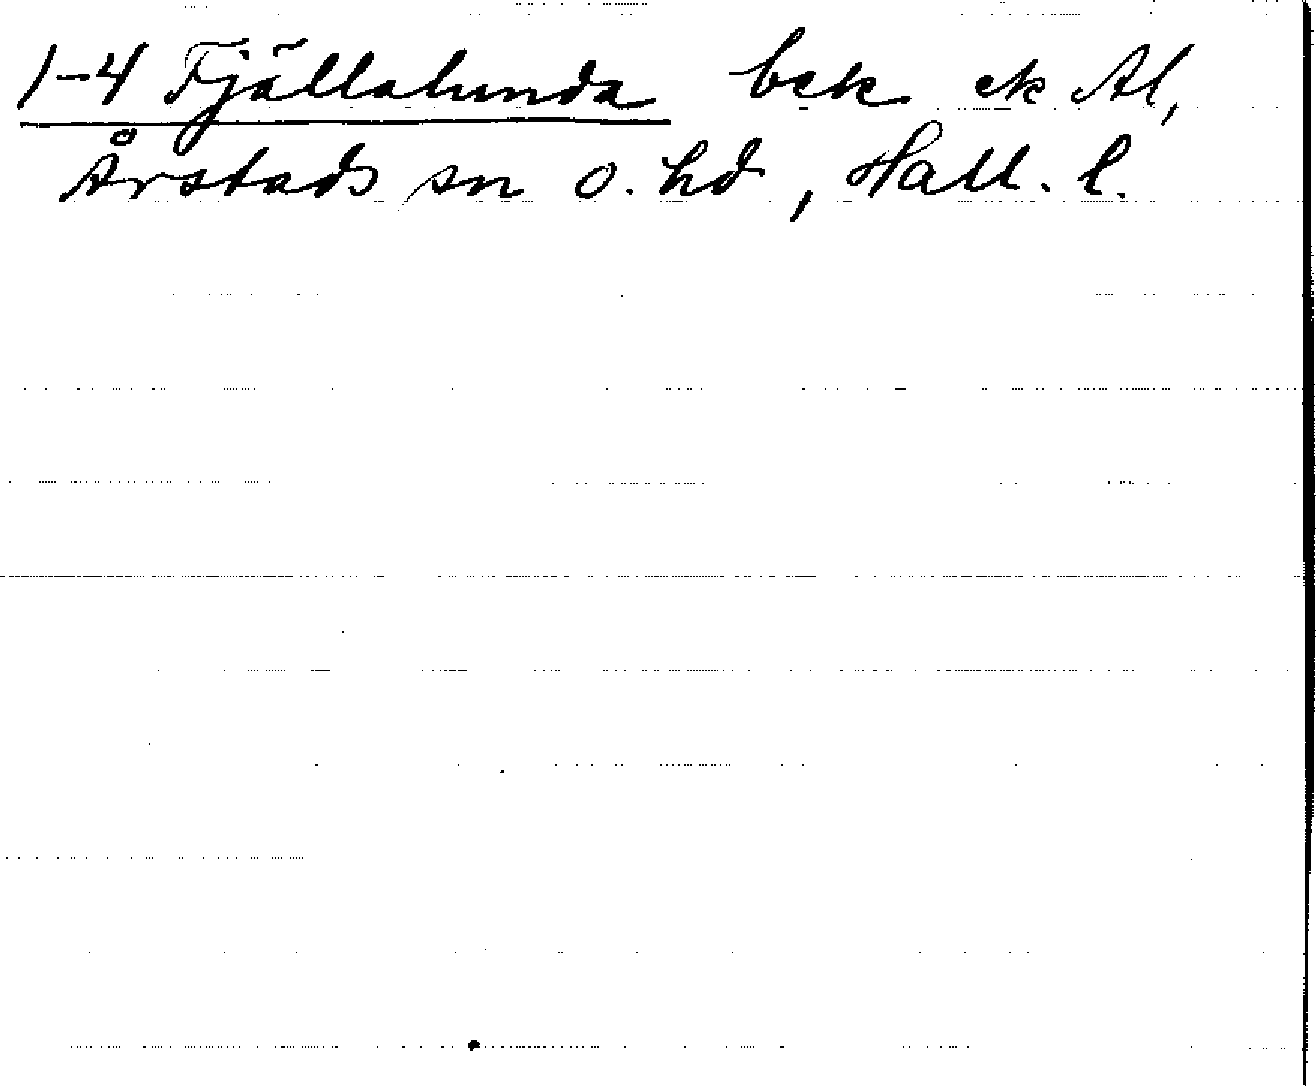 1-4 Fjällalunda bek ek Al,
Årstads sn o. hd, Hall. l.